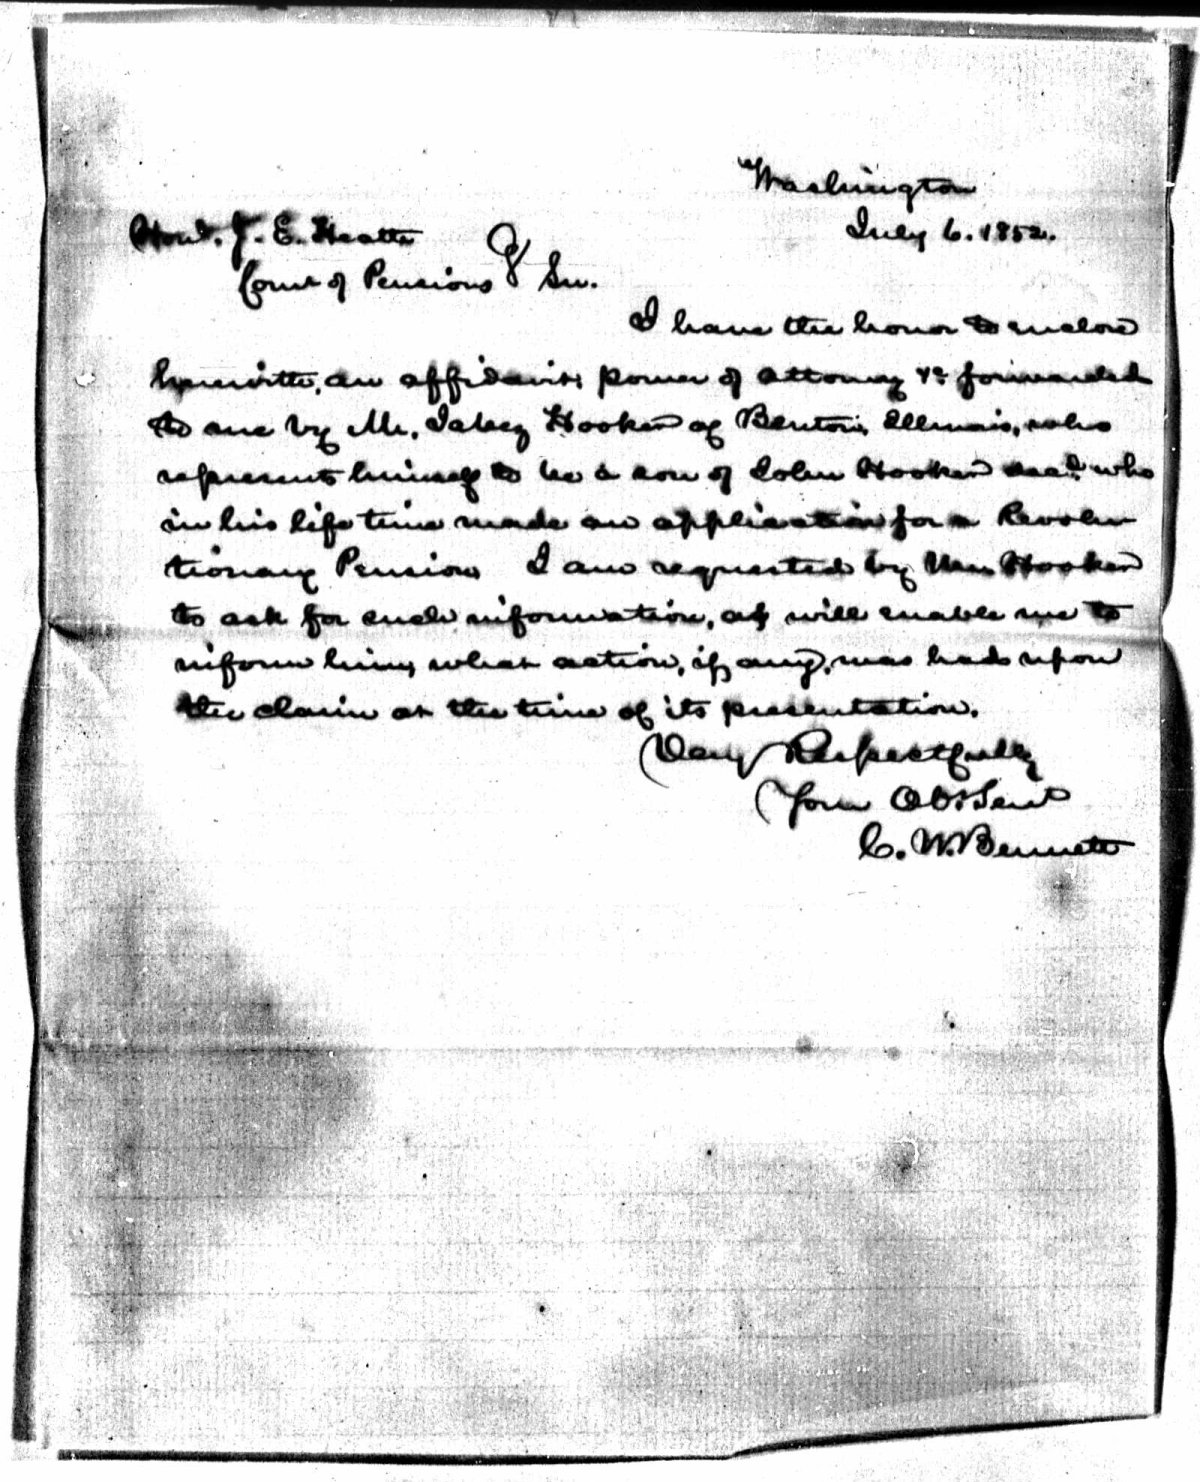 Washington
July 6. 1852.
Hon'l. J. E. Heath
Com'r of Pensions } Sir.
I have the honor to enclose
herewith, an affidavit, power of attorney &c forwarded
to me by Mr. Jabez Hooker of Benton, Illinois, who
represents himself to be a son of John Hooker dec'd. who
in his life time made an application for a Revolu-
tionary Pension. I am requested by Hooker
to ask for such information, as will enable me to
inform him, what action, if any, was had upon
the claim at the time of its presentation.
Very Respectfully
Your Ob't Serv't
C. W. Bennett